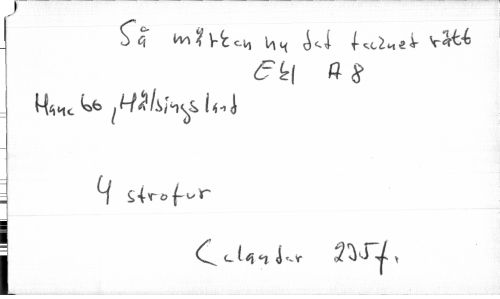 Så märken nu det tecknet rätt
Ekl A 8
Hanebo, Hälsingland
4 strofur
Celander 235f.